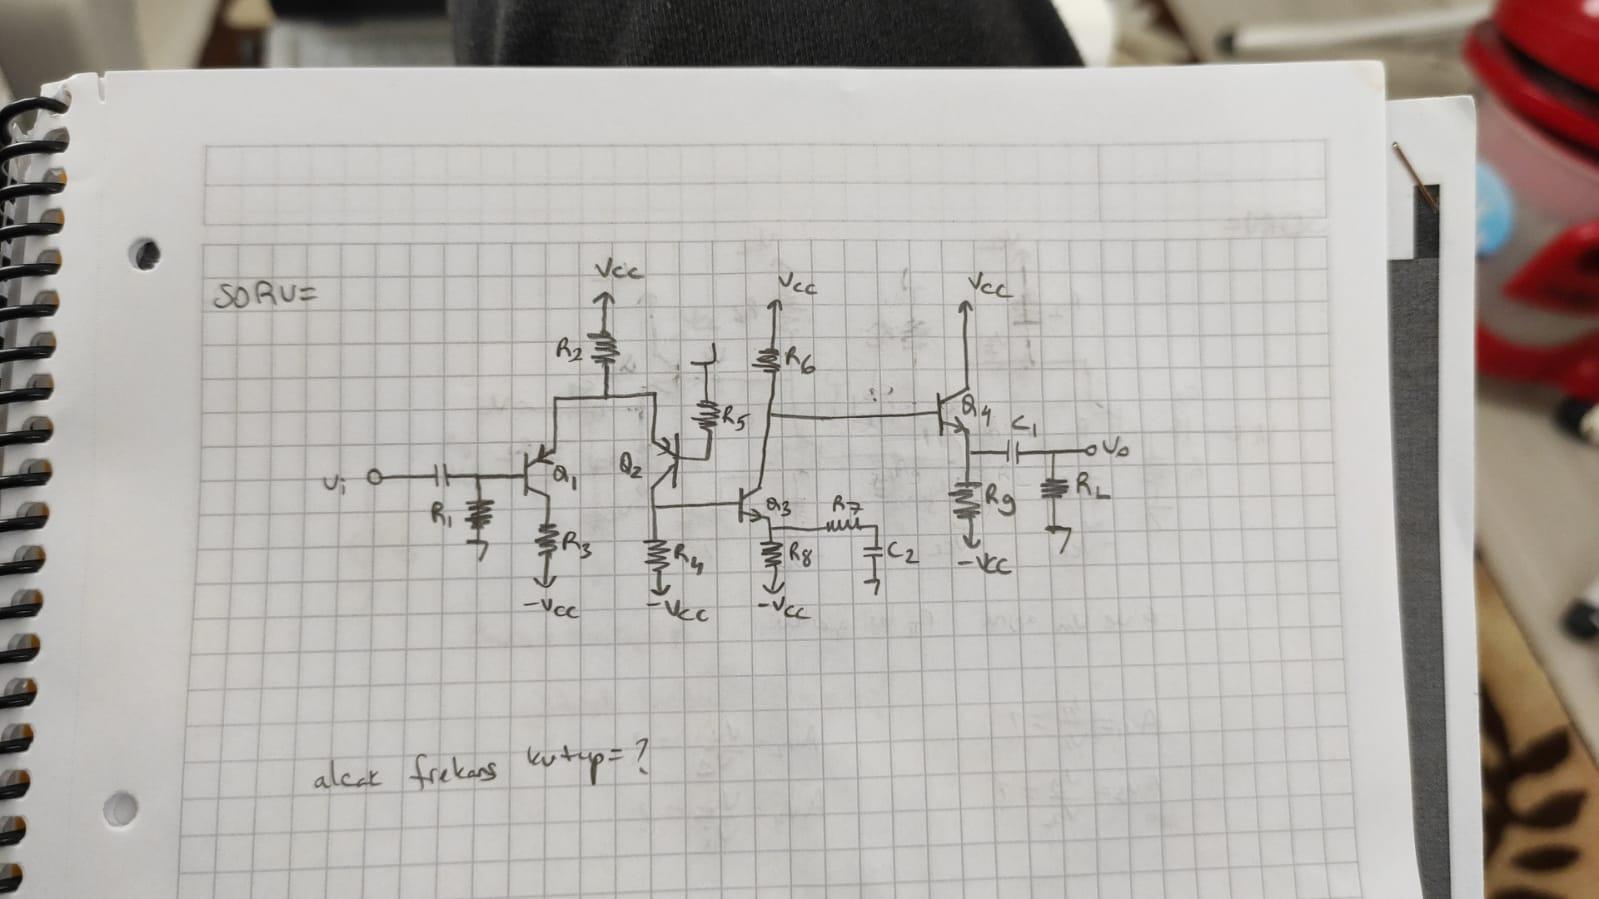 SORU=
Vcc
Vcc
Vcc
R2
R6
R5
Q4
C1
Vo
Vi
Q1
Q2
Q3
R7
R9
RL
R1
R3
R4
R8
C2
-Vcc
-Vcc
-Vcc
-Vcc
alcak frekans kutup=?